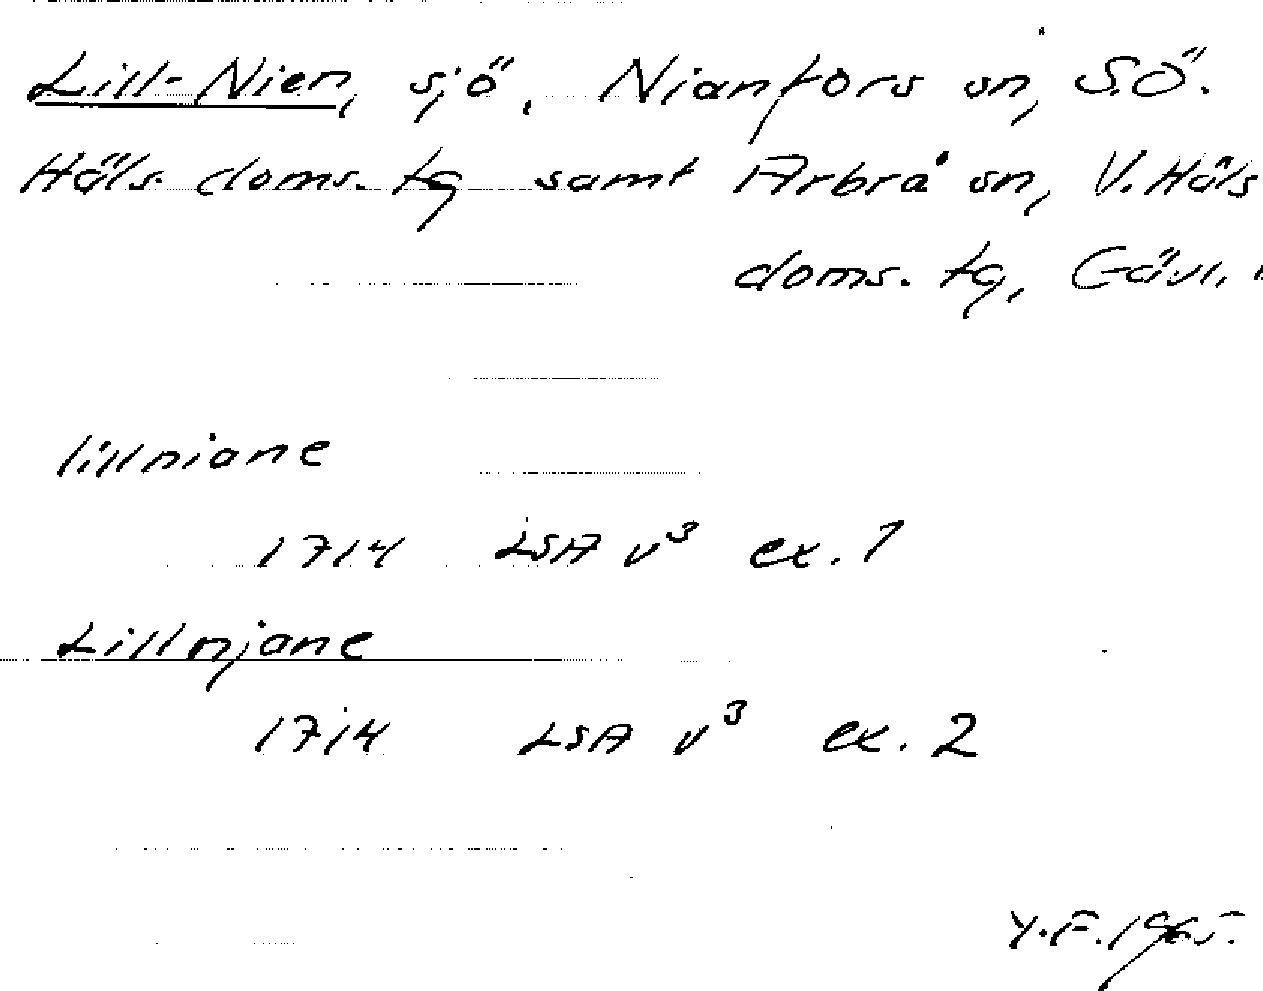 Lill-Nien, sjö, Nianfors sn, S.Ö.
Häls. doms. tg samt Arbrå sn, V. Häls
doms. tg, Gävl.
lillniane
1714 LSA v³ ex. 1
Lillnjane
1714 LSA v³ ex. 2
Y.F. 1965.